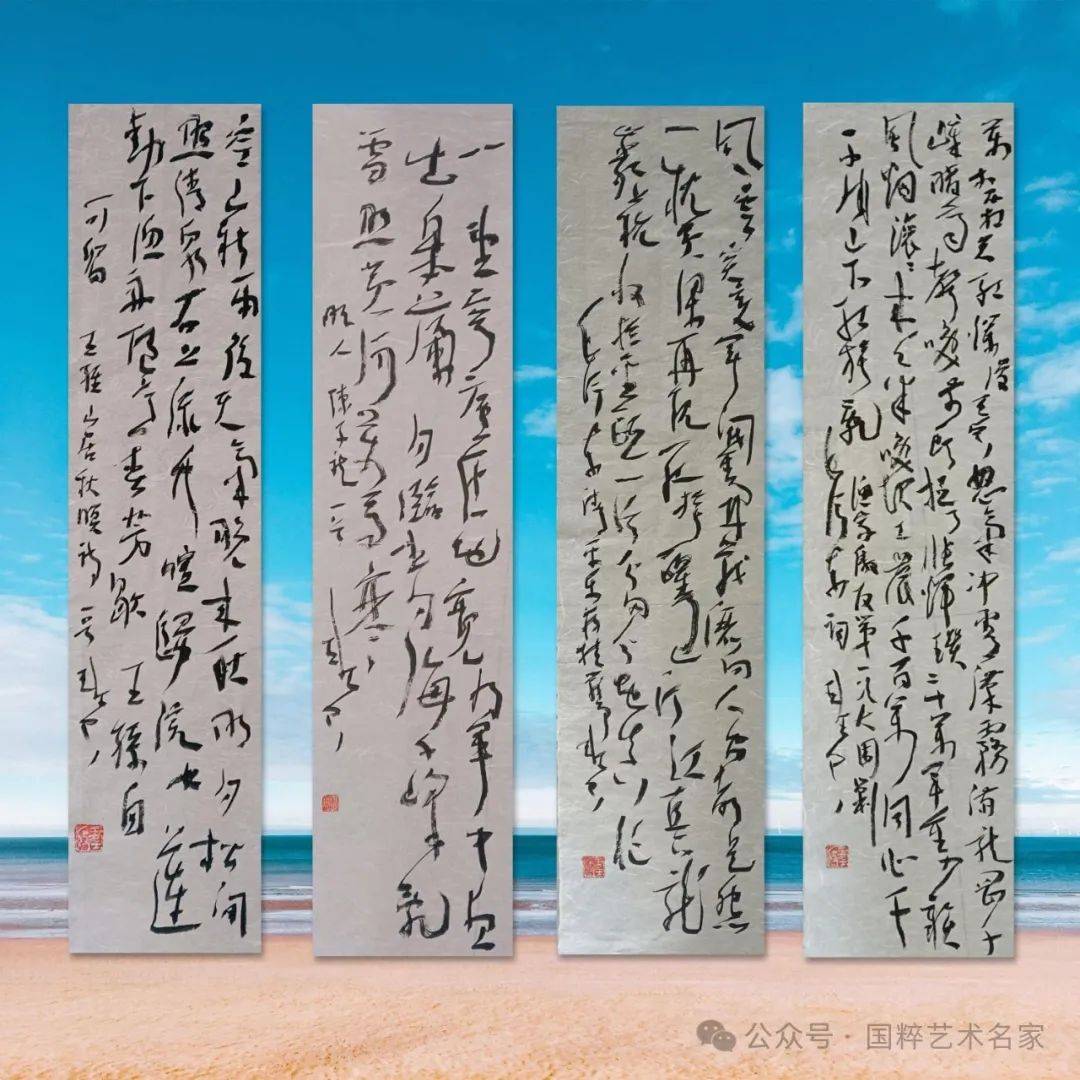 萬木霜天红烂漫天兵怒气冲霄漢霧滿龙岡千
嶂暗齐声唤前头捉了张辉瓒二十萬军重入赣
风烟滚滚来天半唤起工农千百萬同心干
不周山下红旗乱 渔家傲反第一次大围剿
毛泽东词
风雲突变军阀重開战洒向人间都是怨
一枕黄粱再现红旗跃过汀江直下龙
岩上杭收拾金瓯一片分田分地真忙
毛泽东清平乐蒋桂战争
雪照黄河萬馬寒
明人陳子龙一首
空山新雨后天氣晚来秋明月松间
照清泉石上流竹喧歸浣女蓮
动下渔舟随意春芳歇王孫自
可留 王維山居秋暝诗一首
公众号 · 国粹艺术名家